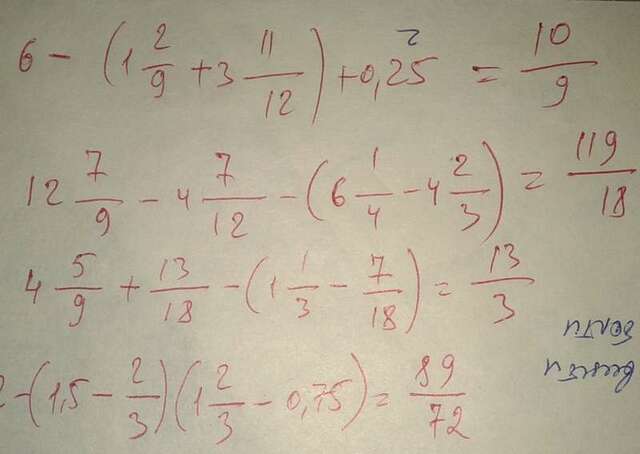 6 - (1 2/9 + 3 11/12) + 0,25 = 10/9
12 7/9 - 4 7/12 - (6 1/4 - 4 2/3) = 119/18
4 5/9 + 13/18 - (1 1/3 - 7/18) = 13/3
2 - (1,5 - 2/3)(1 2/3 - 0,75) = 89/72